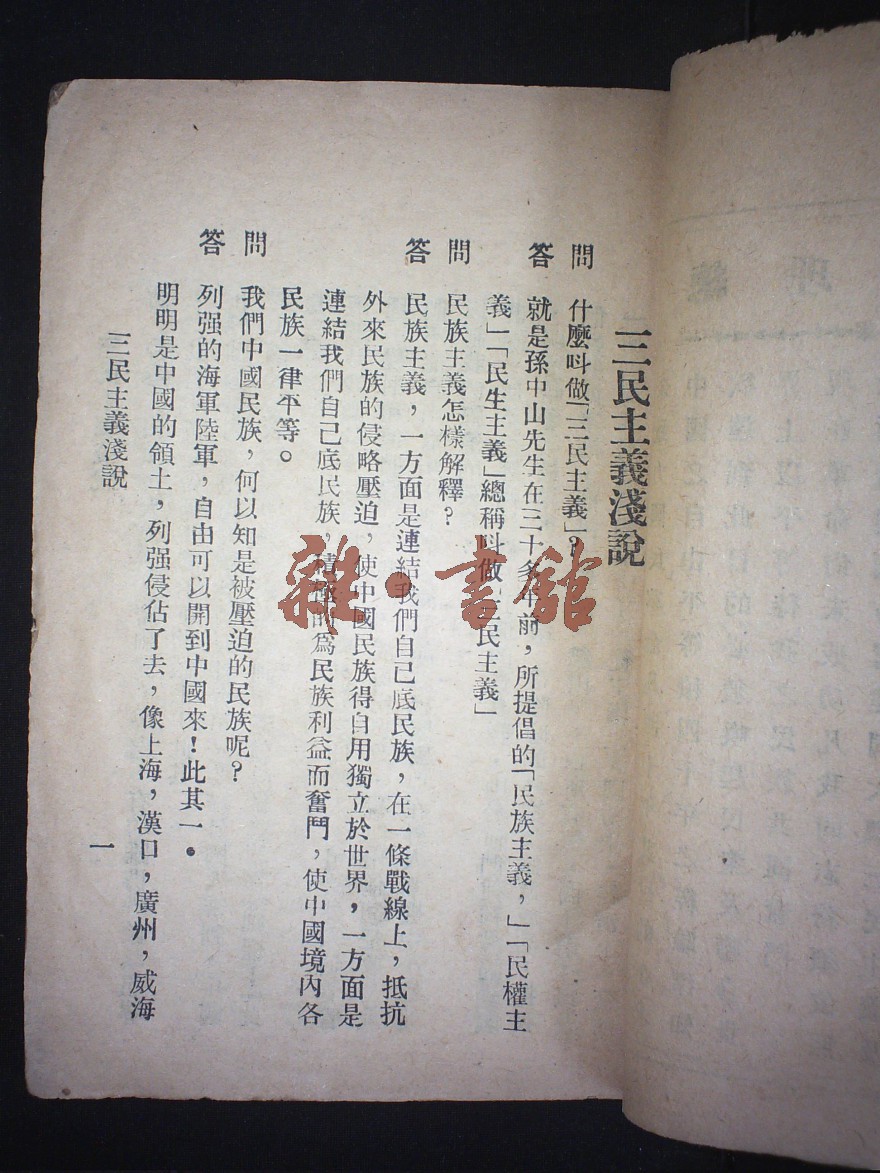 三民主義淺說
問 什麼呌做「三民主義」?
答 就是孫中山先生在三十多年前，所提倡的「民族主義，」「民權主
義」「民生主義」總稱呌做「三民主義」
問 民族主義怎樣解釋?
答 民族主義，一方面是連結我們自己底民族，在一條戰線上，抵抗
外來民族的侵略壓迫，使中國民族得自用獨立於世界，一方面是
連結我們自己底民族，積極的爲民族利益而奮鬥，使中國境內各
民族一律平等。
問 我們中國民族，何以知是被壓迫的民族呢?
答 列强的海軍陸軍，自由可以開到中國來!此其一。
明明是中國的領土，列强侵佔了去，像上海，漢口，廣州，威海
三民主義淺說
一
雜·書館